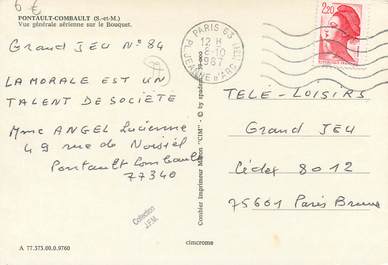 6€
PONTAULT-COMBAULT (S.-et-M.)
Vue générale aérienne sur le Bouquet.
Grand JEU N° 84
LA MORALE EST UN
TALENT DE SOCIÉTÉ
Mme ANGEL Lucienne
49 rue de Noisiel
Pontault Combault
77340
Collection
J.F.M.
A 77.373.00.0.9760
Combier Imprimeur Mâcon "CIM"
cimcrome
PARIS 63
12 H
-10
1987
PL JEANNE d'ARC (13E)
2,20
TÉLÉ-LOISIRS
Grand JEU
Cédex 8012
75601 Paris Brune